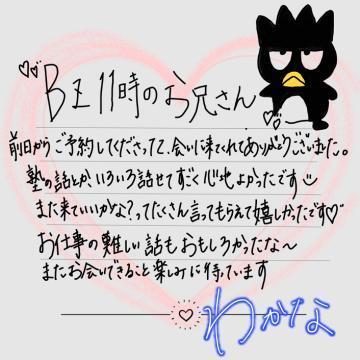 B1 11時のお兄さん
前日からご予約してくださって、会いに来てくれてありがとうございました。
塾の話とか、いろいろ話せてすごく心地よかったです
また来ていいかな?ってたくさん言ってもらえて嬉しかったです♡
お仕事の難しい話もおもしろかったな〜
またお会いできること楽しみに待っています
わかな